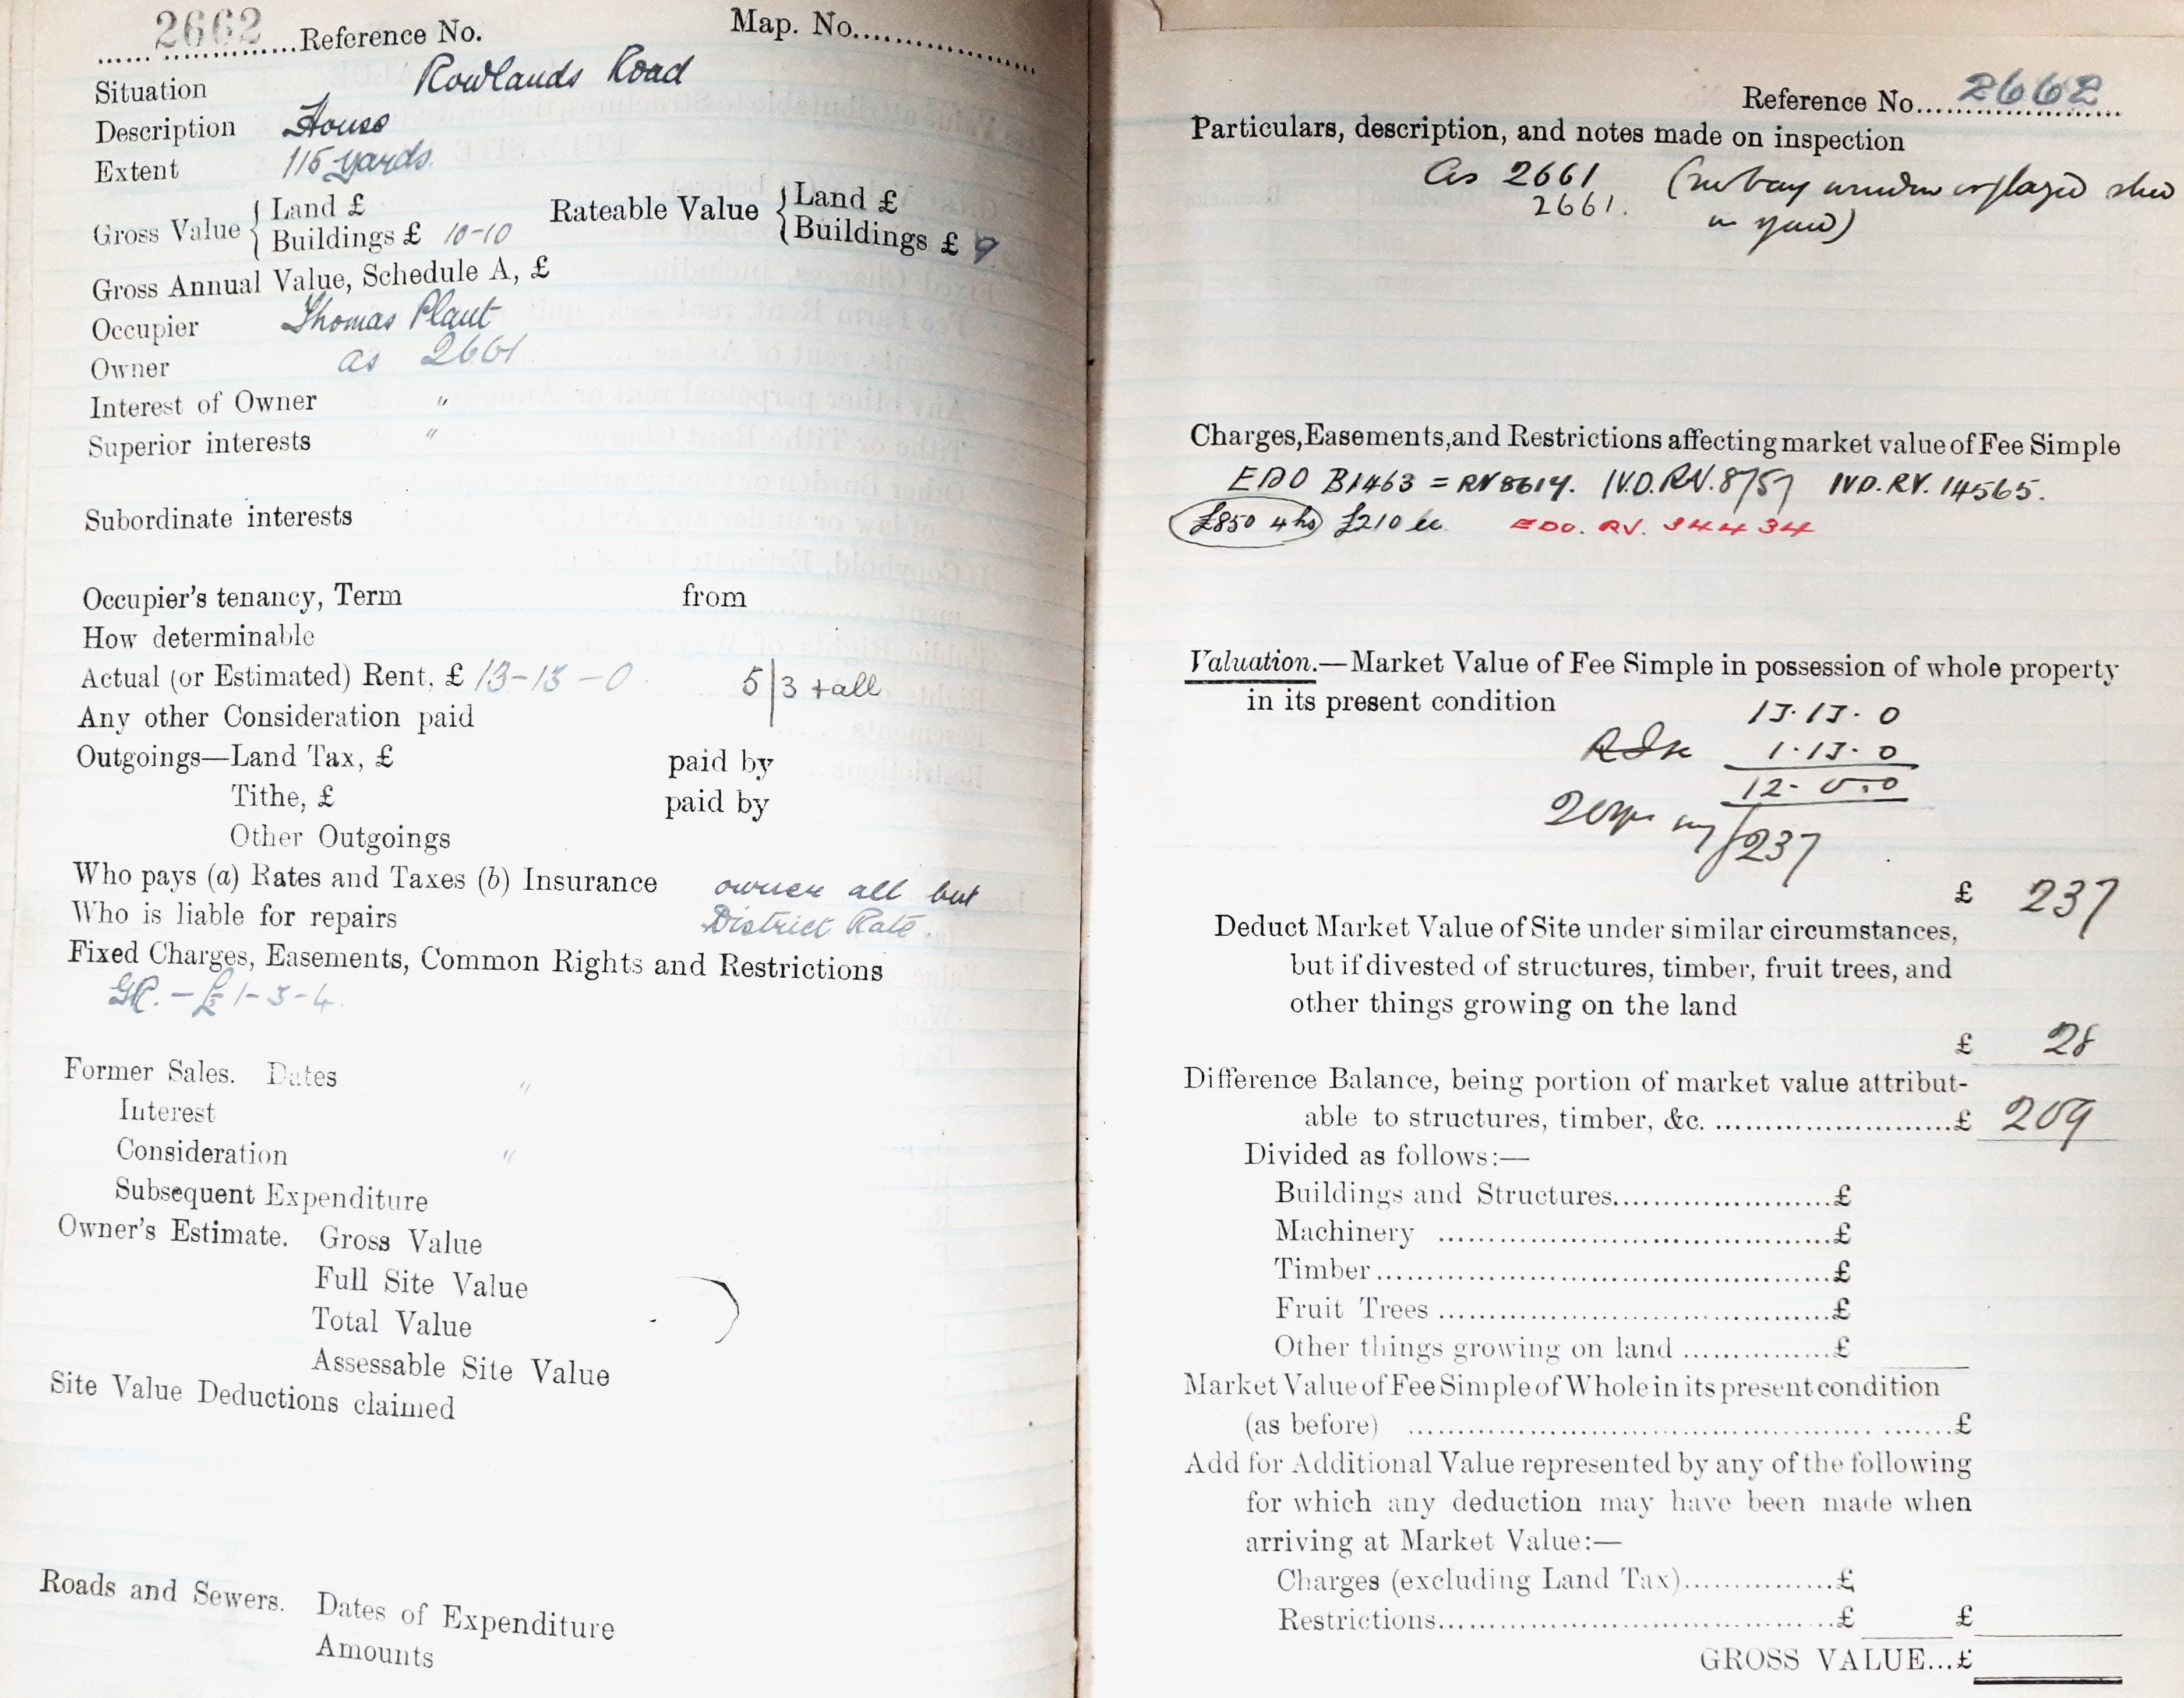 2662 Reference No. Map. No.
Situation Rowlands Road
Description House
Extent 115 yards.
Gross Value { Land £
Buildings £ 10-10
Rateable Value { Land £
Buildings £ 9.
Gross Annual Value, Schedule A, £
Occupier Thomas Plant
Owner as 2661
Interest of Owner "
Superior interests "
Subordinate interests
Occupier's tenancy, Term from
How determinable
Actual (or Estimated) Rent, £ 13-13-0. 5/3 + all
Any other Consideration paid
Outgoings—Land Tax, £ paid by
Tithe, £ paid by
Other Outgoings
Who pays (a) Rates and Taxes (b) Insurance owner all but
Who is liable for repairs District Rate.
Fixed Charges, Easements, Common Rights and Restrictions
GR. - £1-3-4.
Former Sales. Dates "
Interest
Consideration "
Subsequent Expenditure
Owner's Estimate. Gross Value
Full Site Value
Total Value
Assessable Site Value
Site Value Deductions claimed
Roads and Sewers. Dates of Expenditure
Amounts
Reference No. 2662
Particulars, description, and notes made on inspection
As 2661 (no bay window or glazed shed
2661. in yard)
Charges, Easements, and Restrictions affecting market value of Fee Simple
EDO B1463 = RV 8614. IVD.RV.8757 IVD.RV.14565.
£850 4 hs £210 ea. EDO. RV. 34434
Valuation.—Market Value of Fee Simple in possession of whole property
in its present condition
13.13.0
1.13.0
12.0.0
20 yrs 237
£ 237
Deduct Market Value of Site under similar circumstances,
but if divested of structures, timber, fruit trees, and
other things growing on the land
£ 28
Difference Balance, being portion of market value attribut-
able to structures, timber, &c. £ 209
Divided as follows:—
Buildings and Structures £
Machinery £
Timber £
Fruit Trees £
Other things growing on land £
Market Value of Fee Simple of Whole in its present condition
(as before) £
Add for Additional Value represented by any of the following
for which any deduction may have been made when
arriving at Market Value:—
Charges (excluding Land Tax) £
Restrictions £ £
GROSS VALUE...£